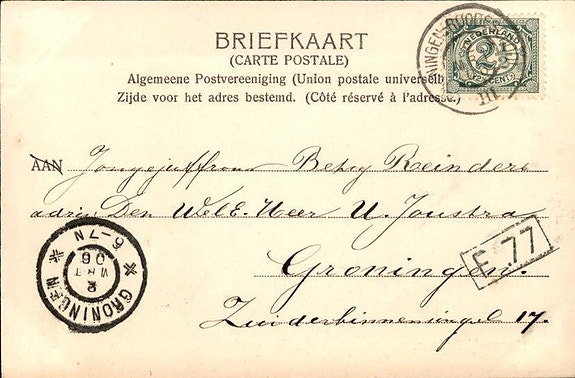 BRIEFKAART
(CARTE POSTALE)
Algemeene Postvereeniging (Union postale universelle)
Zijde voor het adres bestemd. (Côté réservé à l'adresse.)
NEDERLAND
2½
CENT
III
AAN Jongejuffrouw Betsy Reinders
adr: Den WelE. Heer U. Joustra
Groningen.
Zuiderbinnensingel 17.
E 77
GRONINGEN
6-7N
2
MRT
06